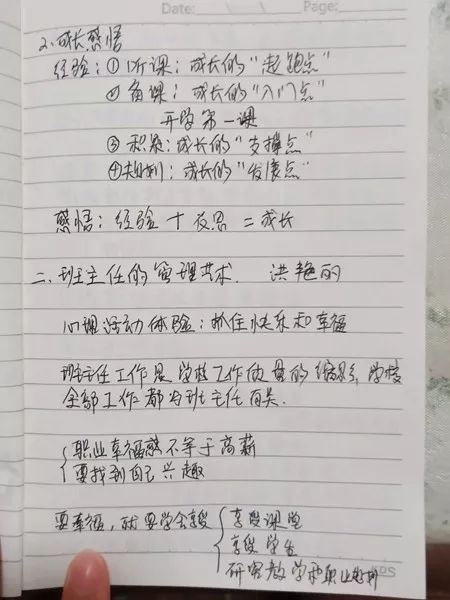 Date: Page:
2.成长感悟
经验:①听课:成长的"起跑点"
②备课:成长的"入门点"
开学第一课
③积累:成长的"支撑点"
④规划:成长的"发展点"
感悟:经验+反思=成长
二、班主任的管理艺术. 洪艳丽
心理活动体验:抓住快乐和幸福
班主任工作是学校工作质量的缩影,学校
全部工作都与班主任有关.
职业幸福感不等于高薪
要找到自己兴趣
要幸福,就要学会享受
享受课堂
享受学生
研究教学